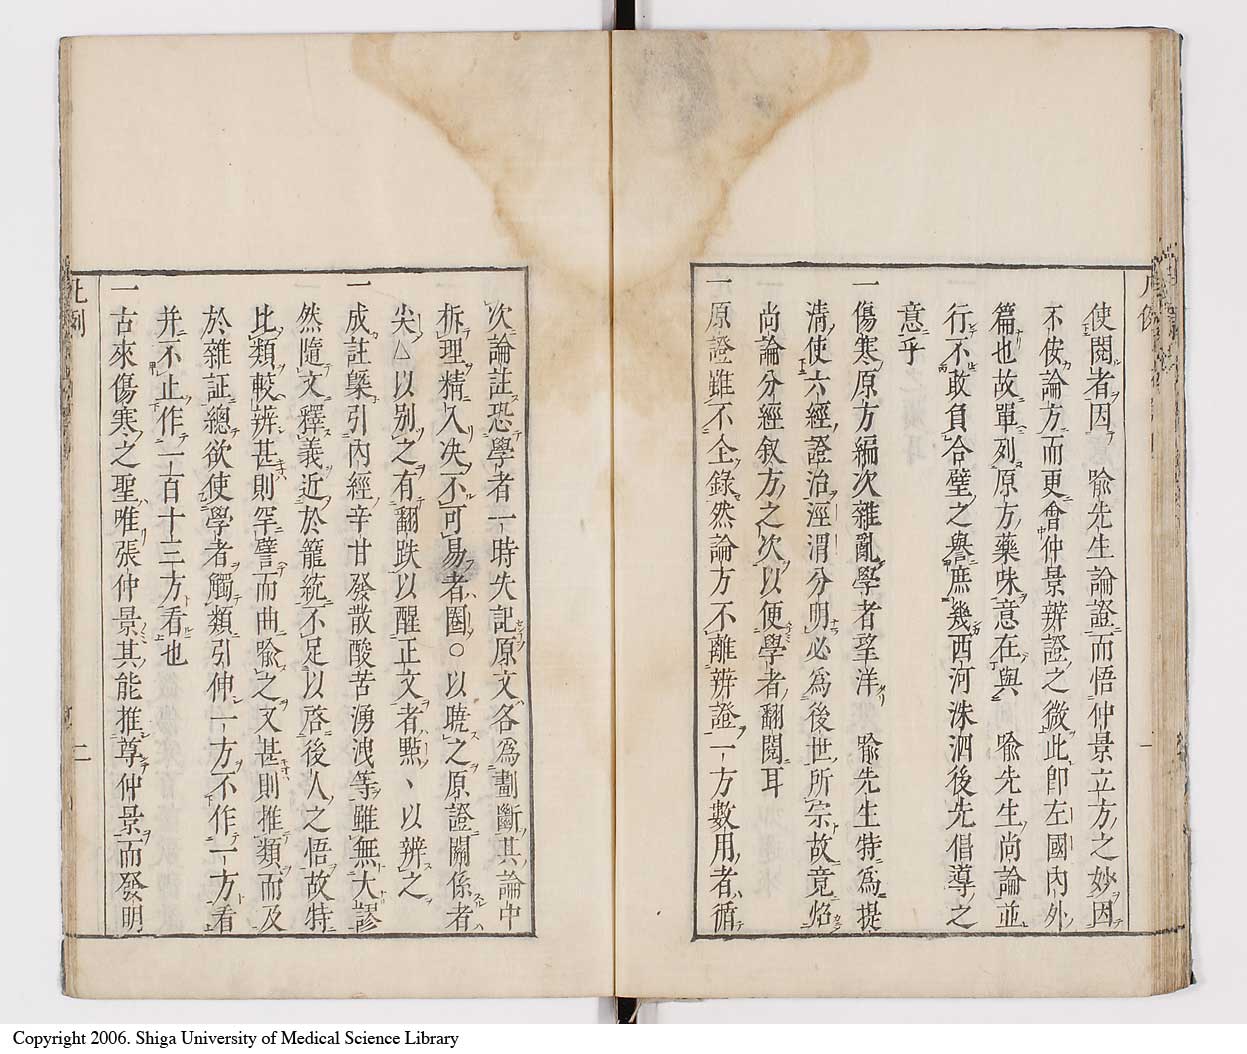 使閱者因 喩先生論證而悟仲景立方之妙因
不侒論方而更會仲景辨證之微此卽左國內外
篇也故單列原方藥味意在與 喩先生尚論並
行不敢負合璧之譽庶幾西河洙泗後先倡導之
意乎
一傷寒原方編次雜亂學者望洋 喩先生特爲提
清使六經證治涇渭分明必爲後世所宗故竟炤
尚論分經叙方之次以便學者翻閱耳
一原證雖不全錄然論方不離辨證一方數用者循
次論註恐學者一時失記原文各爲劃斷其論中
析理精入決不可易者圏○以曉之原證關係者
尖△以別之有翻跌以醒正文者㸃丶以辨之
一成註槩引內經辛甘發散酸苦湧洩等雖無大謬
然隨文釋義近於籠統不足以啓後人之悟故特
比類較辨甚則罕譬而曲喩之又甚則推類而及
於雜証總欲使學者觸類引伸一方不作一方看
并不止作一百十三方看也
一古來傷寒之聖唯張仲景其能推尊仲景而發明
凡例
二
一
Copyright 2006. Shiga University of Medical Science Library